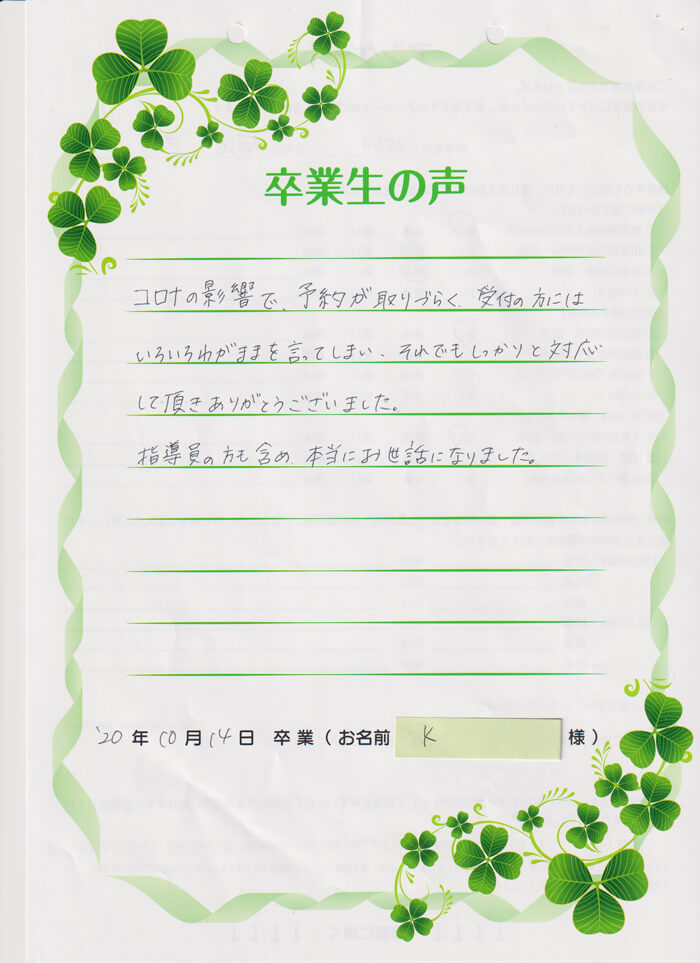 卒業生の声
コロナの影響で、予約が取りづらく、受付の方には
いろいろわがままを言ってしまい、それでもしっかりと対応
して頂きありがとうございました。
指導員の方も含め、本当にお世話になりました。
'20 年 10 月 14 日 卒業(お名前 K 様)